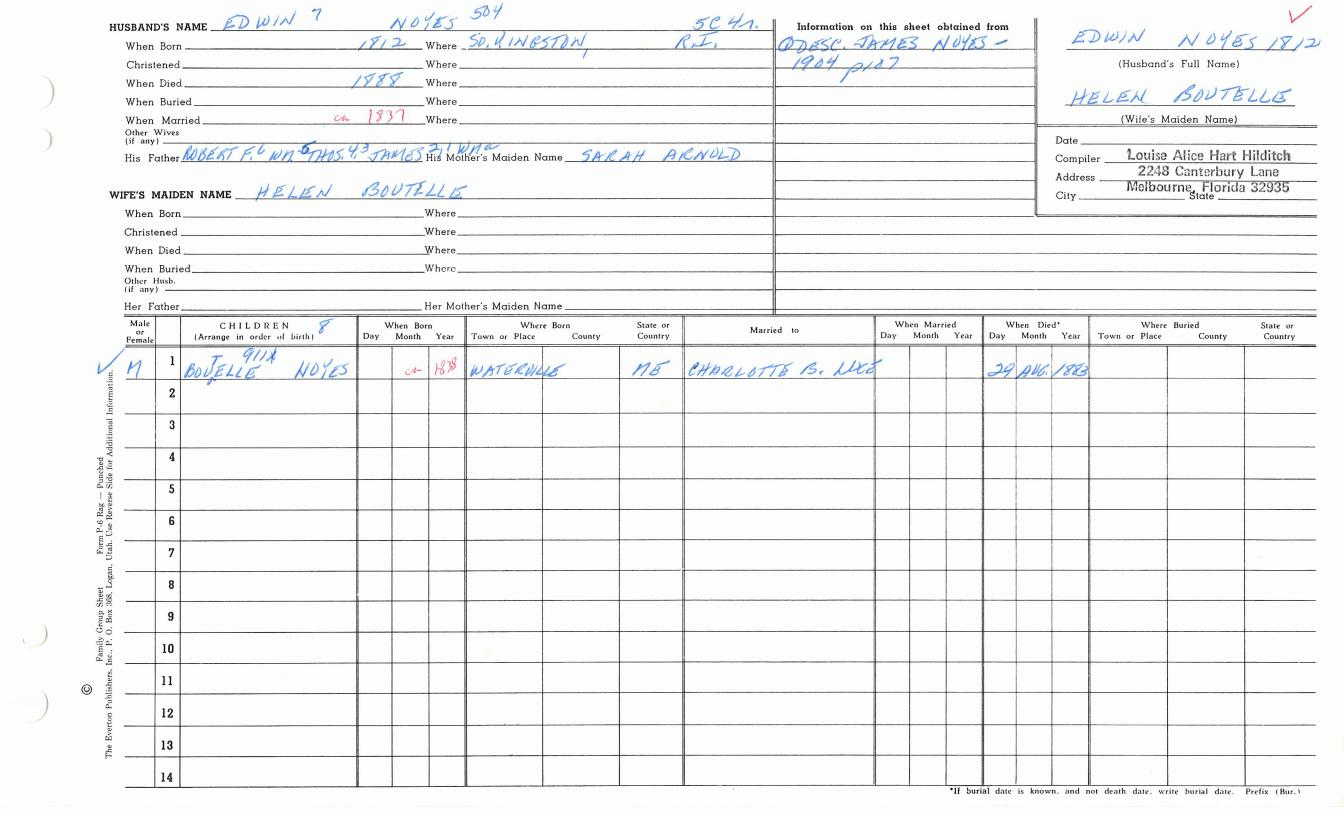 HUSBAND'S NAME EDWIN 7 NOYES 504 5C4r.
When Born 1812 Where SO. KINGSTON, R.I.
Christened Where
When Died 1888 Where
When Buried Where
When Married ca 1837 Where
Other Wives
(if any)
His Father ROBERT F.6 WM 5 THOS. 4,3 JAMES 2,1 WMa His Mother's Maiden Name SARAH ARNOLD
WIFE'S MAIDEN NAME HELEN BOUTELLE
When Born Where
Christened Where
When Died Where
When Buried Where
Other Husb.
(if any)
Her Father Her Mother's Maiden Name
Information on this sheet obtained from
DESC. JAMES NOYES -
1904 p107
EDWIN NOYES 1812
(Husband's Full Name)
HELEN BOUTELLE
(Wife's Maiden Name)
Date
Compiler Louise Alice Hart Hilditch
Address 2248 Canterbury Lane
Melbourne, Florida 32935
City State
Male or Female CHILDREN 8 (Arrange in order of birth) When Born Day Month Year Where Born Town or Place County State or Country Married to When Married Day Month Year When Died* Day Month Year Where Buried Town or Place County State or Country
911A
M 1 BOUTELLE NOYES ca 1838 WATERVILLE ME CHARLOTTE B. LUCE 29 AUG. 1883
2
3
4
5
6
7
8
9
10
11
12
13
14
*If burial date is known, and not death date, write burial date. Prefix (Bur.)
© Family Group Sheet Form P-6 Rag — Punched
The Everton Publishers, Inc., P. O. Box 368, Logan, Utah. Use Reverse Side for Additional Information.